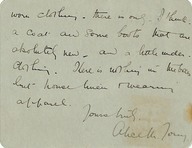 worn clothing - there is only I think
a coat and some boots that are
absolutely new - and a little under-
clothing. There is nothing in the box
but house linen & wearing
apparel.
Yours truly
Alice M.